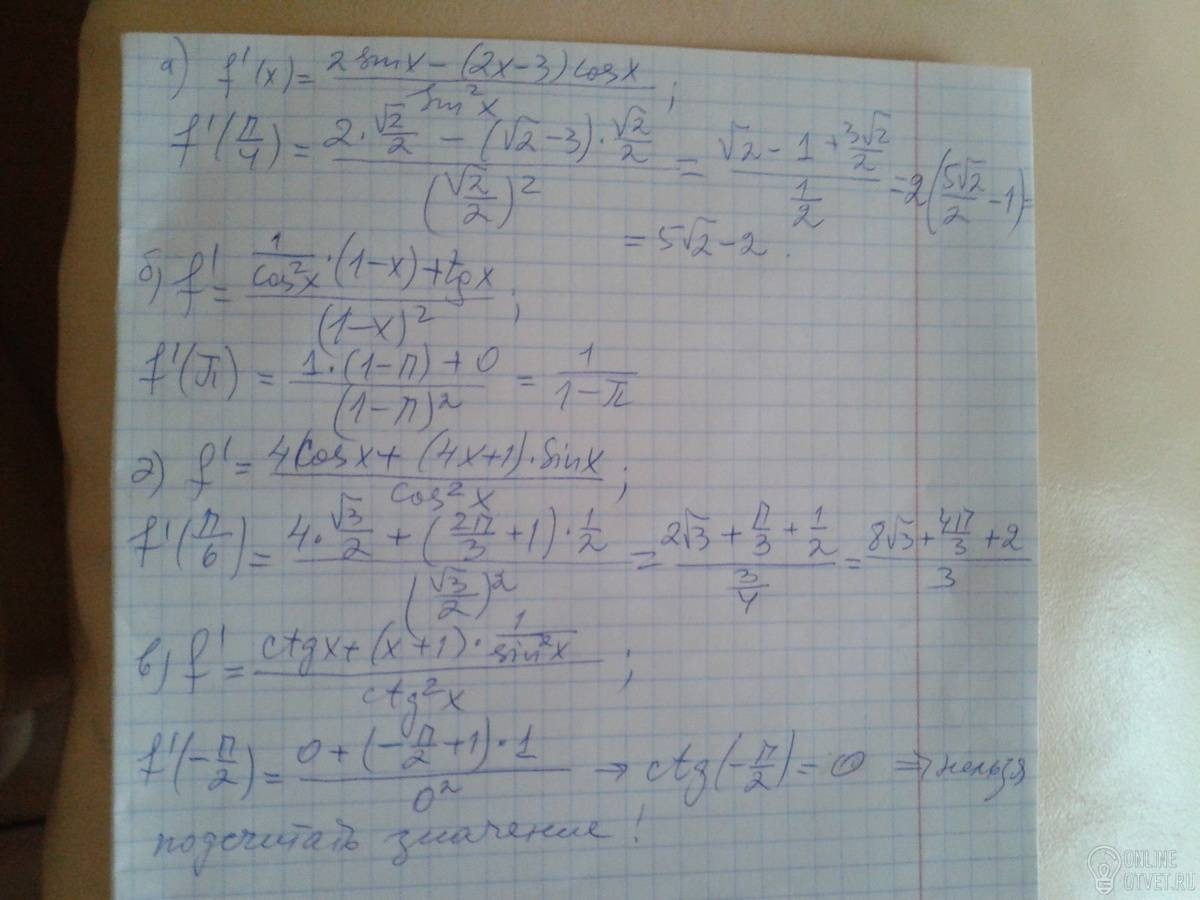 а) f'(x) = (2sinx − (2x−3)cosx)/(sin²x);
f'(π/4) = (2·√2/2 − (√2−3)·√2/2)/((√2/2)²) = (√2 − 1 + 3√2/2)/(1/2) = 2(5√2/2 − 1) =
= 5√2 − 2.
б) f' = (1/cos²x·(1−x) + tgx)/((1−x)²);
f'(π) = (1·(1−π) + 0)/((1−π)²) = 1/(1−π)
г) f' = (4cosx + (4x+1)·sinx)/(cos²x);
f'(π/6) = (4·√3/2 + (2π/3 + 1)·1/2)/((√3/2)²) = (2√3 + π/3 + 1/2)/(3/4) = (8√3 + 4π/3 + 2)/3
в) f' = (ctgx + (x+1)·1/sin²x)/(ctg²x);
f'(−π/2) = (0 + (−π/2 + 1)·1)/(0²) → ctg(−π/2) = 0 ⇒ нельзя
подсчитать значение!
ONLINE
OTVET.RU